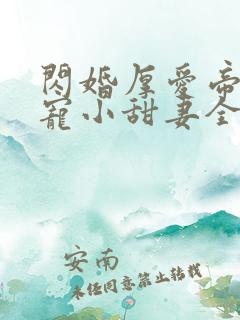 閃婚厚愛帝
寵小甜妻全
安南
未经同意禁止转载